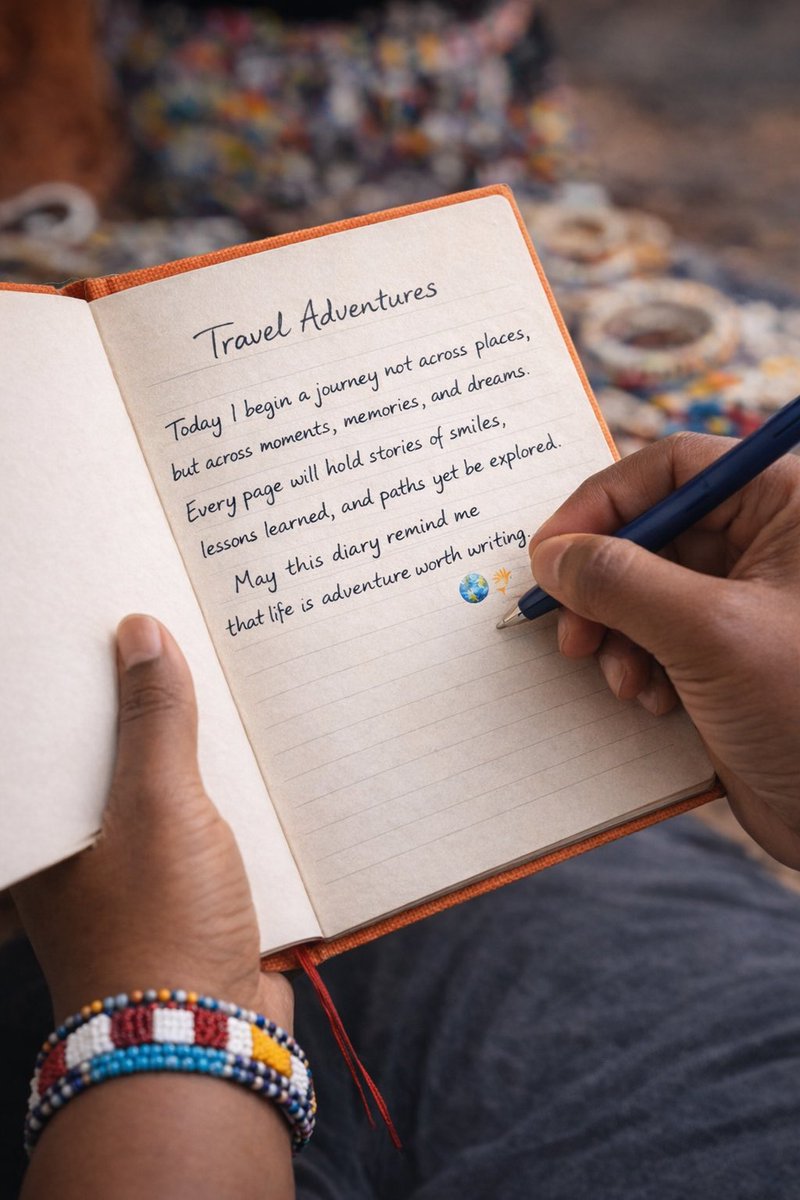 Travel Adventures
Today I begin a journey not across places,
but across moments, memories, and dreams.
Every page will hold stories of smiles,
lessons learned, and paths yet be explored.
May this diary remind me
that life is adventure worth writing. 🌍